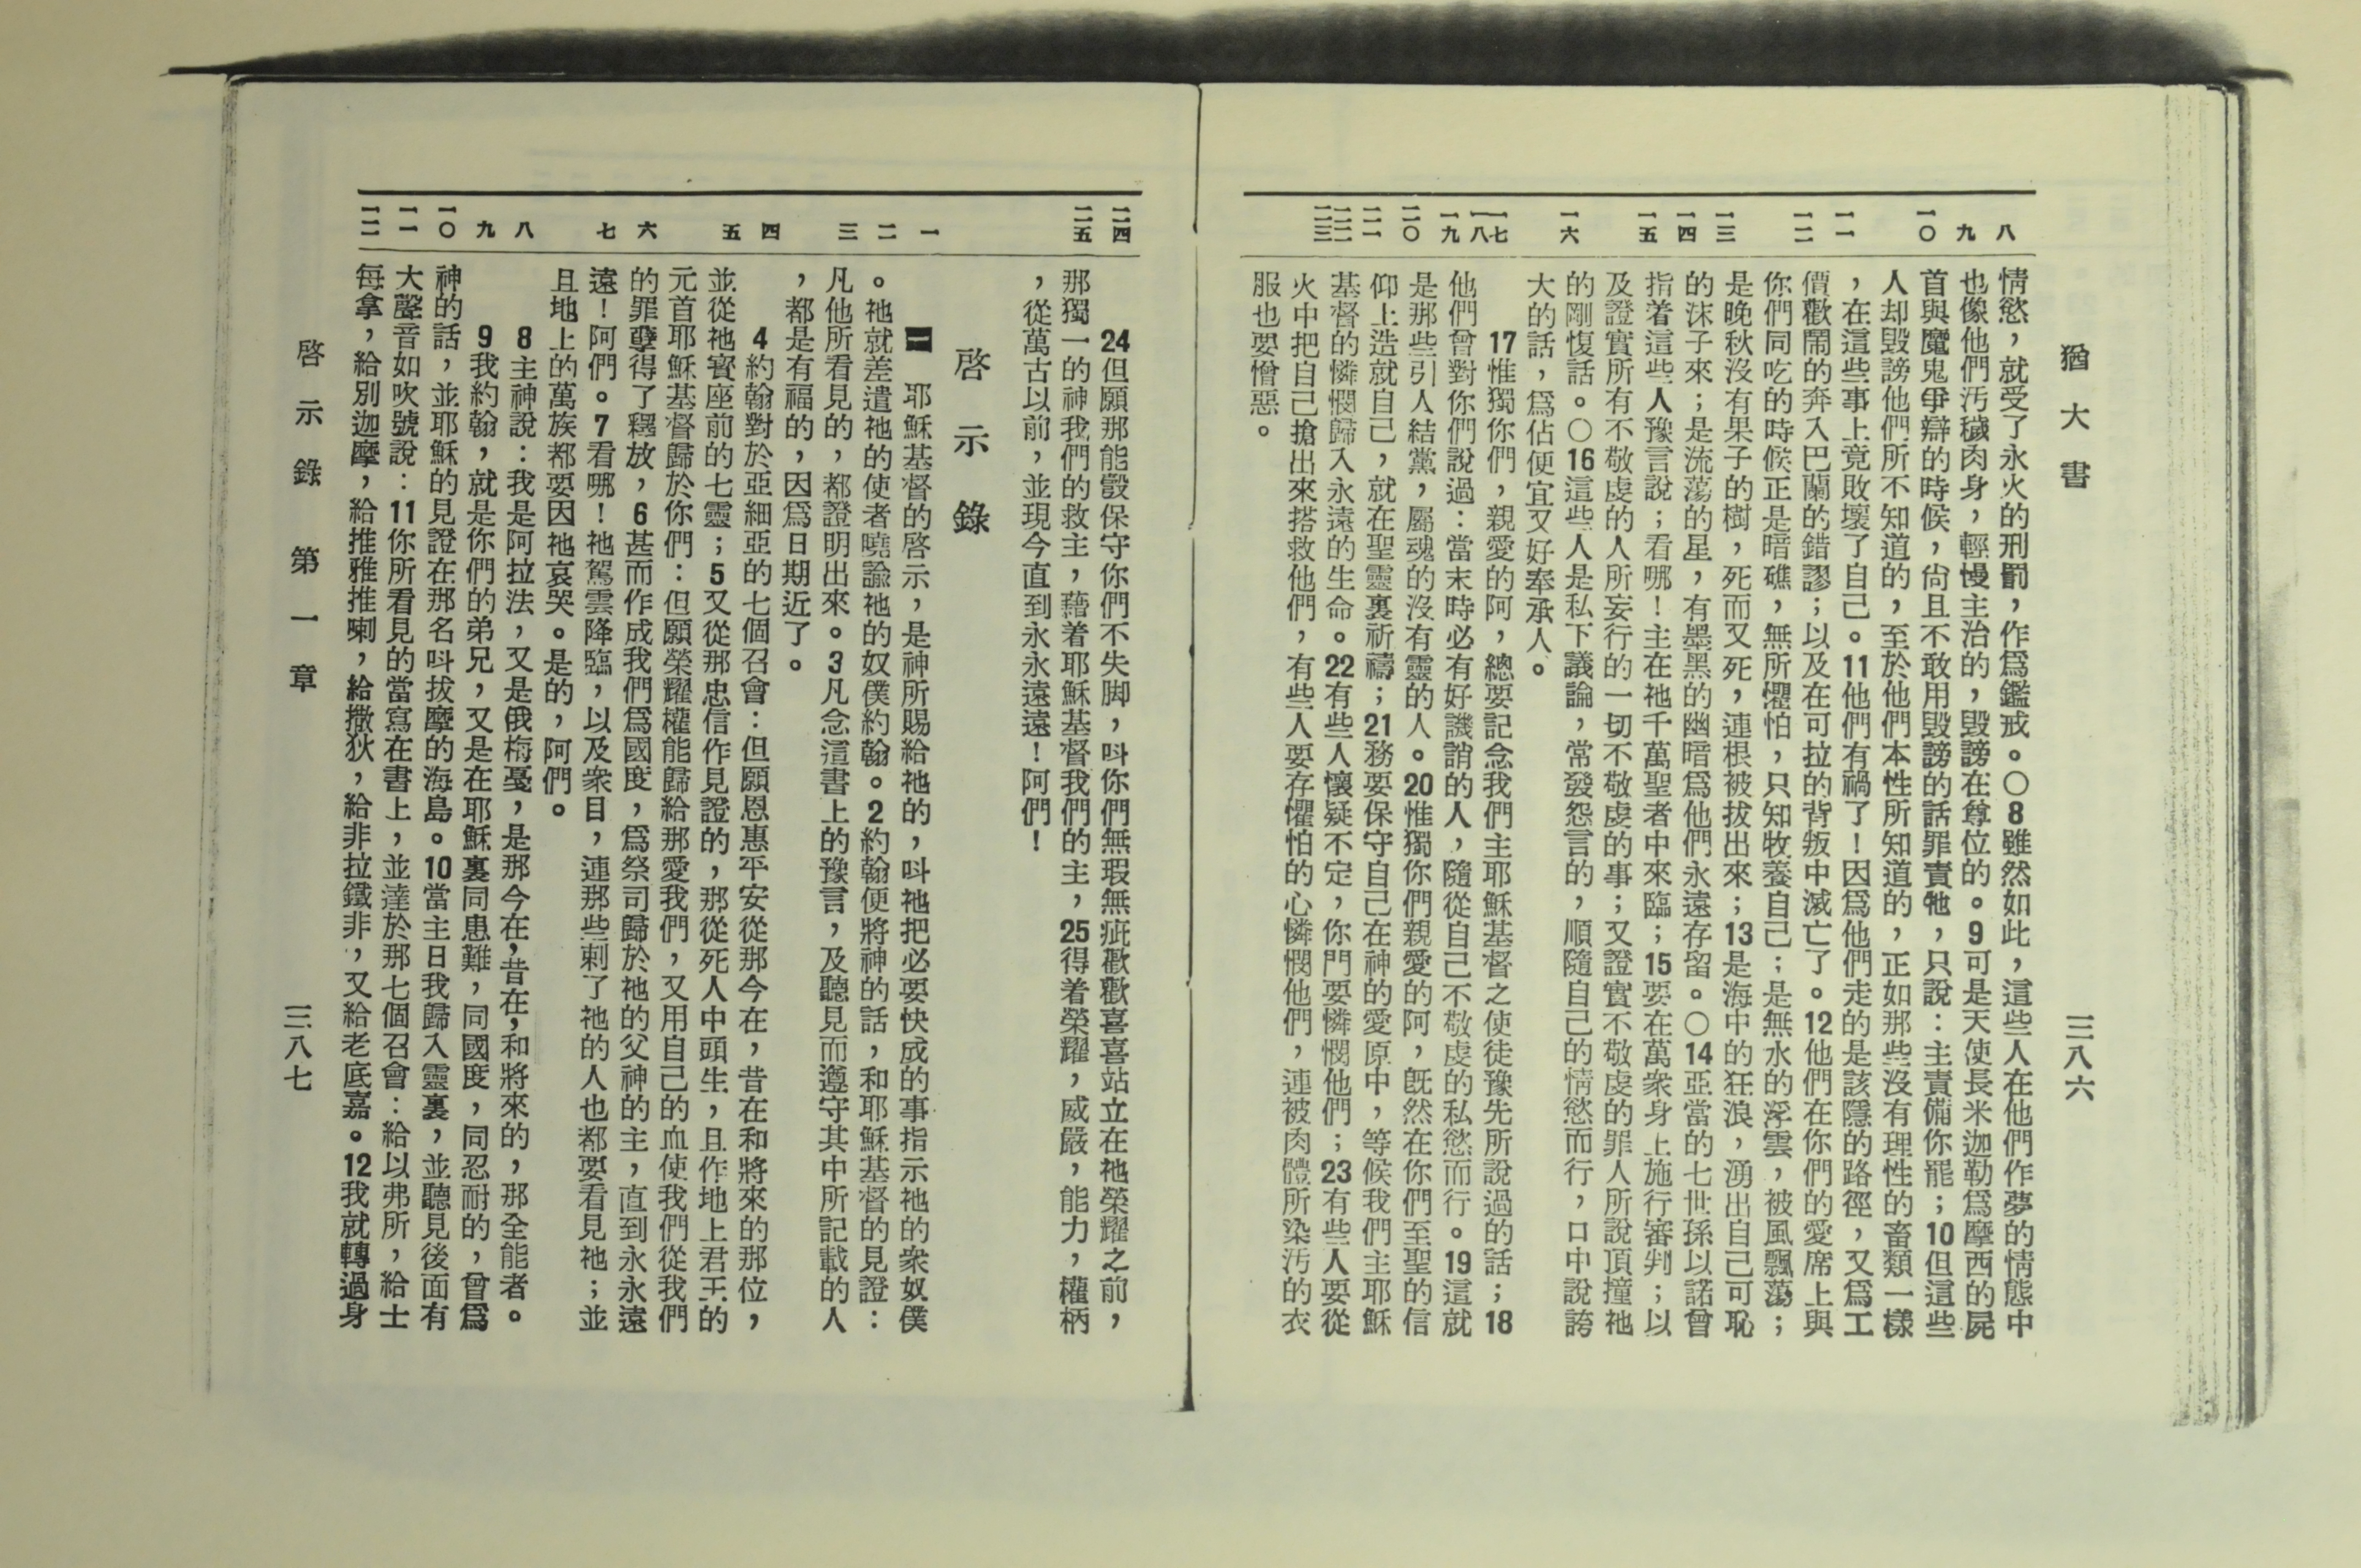 猶大書
三八六
八
九
一〇
一一
一二
一三
一四
一五
一六
一七
一八
一九
二〇
二一
二二
二三
情慾，就受了永火的刑罰，作爲鑑戒。〇8雖然如此，這些人在他們作夢的情態中
也像他們汚穢肉身，輕慢主治的，毀謗在尊位的。9可是天使長米迦勒爲摩西的屍
首與魔鬼爭辯的時候，尙且不敢用毀謗的話罪責牠，只說：主責備你罷；10但這些
人却毀謗他們所不知道的，至於他們本性所知道的，正如那些沒有理性的畜類一樣
，在這些事上竟敗壞了自己。11他們有禍了！因爲他們走的是該隱的路徑，又爲工
價歡鬧的奔入巴蘭的錯謬；以及在可拉的背叛中滅亡了。12他們在你們的愛席上與
你們同吃的時候正是暗礁，無所懼怕，只知牧養自己；是無水的浮雲，被風飄蕩；
是晚秋沒有果子的樹，死而又死，連根被拔出來；13是海中的狂浪，湧出自己可恥
的沫子來；是流蕩的星，有墨黑的幽暗爲他們永遠存留。〇14亞當的七世孫以諾曾
指着這些人豫言說；看哪！主在祂千萬聖者中來臨；15要在萬衆身上施行審判；以
及證實所有不敬虔的人所妄行的一切不敬虔的事；又證實不敬虔的罪人所說頂撞祂
的剛愎話。〇16這些人是私下議論，常發怨言的，順隨自己的情慾而行，口中說誇
大的話，爲佔便宜又好奉承人。
17惟獨你們，親愛的阿，總要記念我們主耶穌基督之使徒豫先所說過的話；18
他們曾對你們說過：當末時必有好譏誚的人，隨從自己不敬虔的私慾而行。19這就
是那些引人結黨，屬魂的沒有靈的人。20惟獨你們親愛的阿，旣然在你們至聖的信
仰上造就自己，就在聖靈裏祈禱；21務要保守自己在神的愛原中，等候我們主耶穌
基督的憐憫歸入永遠的生命。22有些人懷疑不定，你門要憐憫他們；23有些人要從
火中把自己搶出來搭救他們，有些人要存懼怕的心憐憫他們，連被肉體所染汚的衣
服也要憎惡。
二四
二五
一
二
三
四
五
六
七
八
九
一〇
一一
一二
24但願那能彀保守你們不失脚，呌你們無瑕無疵歡歡喜喜站立在祂榮耀之前，
那獨一的神我們的救主，藉着耶穌基督我們的主，25得着榮耀，威嚴，能力，權柄
，從萬古以前，並現今直到永永遠遠！阿們！
啓示錄
一　耶穌基督的啓示，是神所賜給祂的，呌祂把必要快成的事指示祂的衆奴僕
。祂就差遣祂的使者曉諭祂的奴僕約翰。2約翰便將神的話，和耶穌基督的見證：
凡他所看見的，都證明出來。3凡念這書上的豫言，及聽見而遵守其中所記載的人
，都是有福的，因爲日期近了。
4約翰對於亞細亞的七個召會：但願恩惠平安從那今在，昔在和將來的那位，
並從祂寳座前的七靈；5又從那忠信作見證的，那從死人中頭生，且作地上君王的
元首耶穌基督歸於你們：但願榮耀權能歸給那愛我們，又用自己的血使我們從我們
的罪孽得了釋放，6甚而作成我們爲國度，爲祭司歸於祂的父神的主，直到永永遠
遠！阿們。7看哪！祂駕雲降臨，以及衆目，連那些刺了祂的人也都要看見祂；並
且地上的萬族都要因祂哀哭。是的，阿們。
8主神說：我是阿拉法，又是俄梅憂，是那今在，昔在，和將來的，那全能者。
9我約翰，就是你們的弟兄，又是在耶穌裏同患難，同國度，同忍耐的，曾爲
神的話，並耶穌的見證在那名呌拔摩的海島。10當主日我歸入靈裏，並聽見後面有
大聲音如吹號說：11你所看見的當寫在書上，並達於那七個召會：給以弗所，給士
每拿，給別迦摩，給推雅推喇，給撒狄，給非拉鐵非，又給老底嘉。12我就轉過身
啓示錄　第一章
三八七